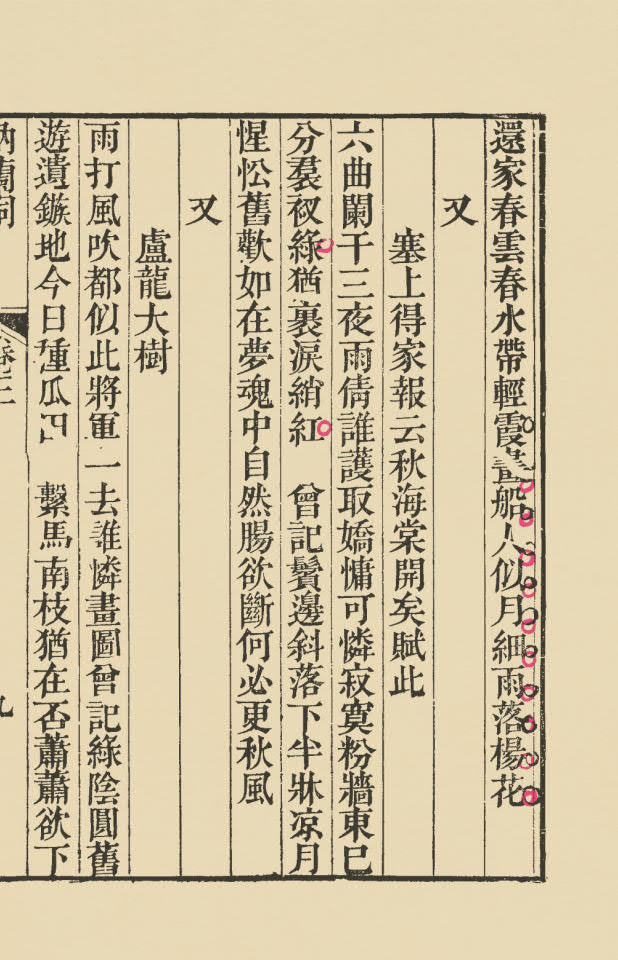 還家春雲春水帶輕霞畫船人似月細雨落楊花
又
塞上得家報云秋海棠開矣賦此
六曲闌干三夜雨倩誰護取嬌慵可憐寂寞粉牆東已
分裙衩綠猶裹淚綃紅 曾記鬢邊斜落下半牀凉月
惺忪舊歡如在夢魂中自然腸欲斷何必更秋風
又
盧龍大樹
雨打風吹都似此將軍一去誰憐畫圖曾記綠陰圓舊
遊遺鏃地今日種瓜田 繫馬南枝猶在否蕭蕭欲下
納蘭詞
卷二
九